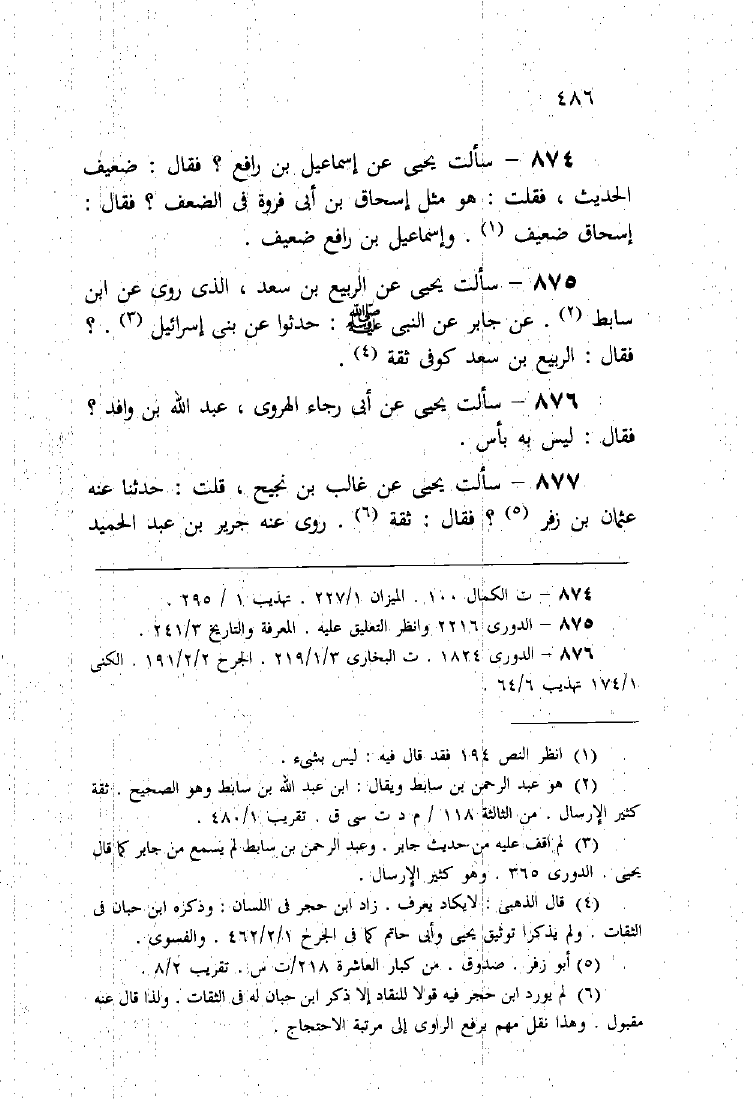 ٤٨٦
٨٧٤ – سألت يحيى عن إسماعيل بن رافع ؟ فقال : ضعيف
الحديث ، فقلت : هو مثل إسحاق بن أبى فروة فى الضعف ؟ فقال :
إسحاق ضعيف (١) . وإسماعيل بن رافع ضعيف .
٨٧٥ – سألت يحيى عن الربيع بن سعد ، الذى روى عن ابن
سابط (٢) . عن جابر عن النبى ﷺ : حدثوا عن بنى إسرائيل (٣) . ؟
فقال : الربيع بن سعد كوفى ثقة (٤) .
٨٧٦ – سألت يحيى عن أبى رجاء الهروى ، عبد الله بن وافد ؟
فقال : ليس به بأس .
٨٧٧ – سألت يحيى عن غالب بن نجيح ، قلت : حدثنا عنه
عثمان بن زفر (٥) ؟ فقال : ثقة (٦) . روى عنه جرير بن عبد الحميد
٨٧٤ – ت الكمال ١٠٠ . الميزان ٢٢٧/١ . تهذيب ١ / ٢٩٥ .
٨٧٥ – الدورى ٢٢١٦ وانظر التعليق عليه . المعرفة والتاريخ ٢٤١/٣ .
٨٧٦ – الدورى ١٨٢٤ . ت البخارى ٢١٩/١/٣ . الجرح ١٩١/٢/٢ . الكنى
١٧٤/١ تهذيب ٦٤/٦ .
(١) انظر النص ١٩٤ فقد قال فيه : ليس بشىء .
(٢) هو عبد الرحمن بن سابط ويقال : ابن عبد الله بن سابط وهو الصحيح . ثقة
كثير الإرسال . من الثالثة ١١٨ / م د ت سى ق . تقريب ٤٨٠/١ .
(٣) لم اقف عليه من حديث جابر . وعبد الرحمن بن سابط لم يسمع من جابر كما قال
يحيى . الدورى ٣٦٥ . وهو كثير الإرسال .
(٤) قال الذهبى : لايكاد يعرف . زاد ابن حجر فى اللسان : وذكره ابن حبان فى
الثقات . ولم يذكرا توثيق يحيى وأبى حاتم كما فى الجرح ٤٦٢/٢/١ . والفسوى .
(٥) أبو زفر . صدوق . من كبار العاشرة ٢١٨/ت س . تقريب ٨/٢ .
(٦) لم يورد ابن حجر فيه قولا للنقاد إلا ذكر ابن حبان له فى الثقات . ولذا قال عنه
مقبول . وهذا نقل مهم يرفع الراوى إلى مرتبة الاحتجاج .